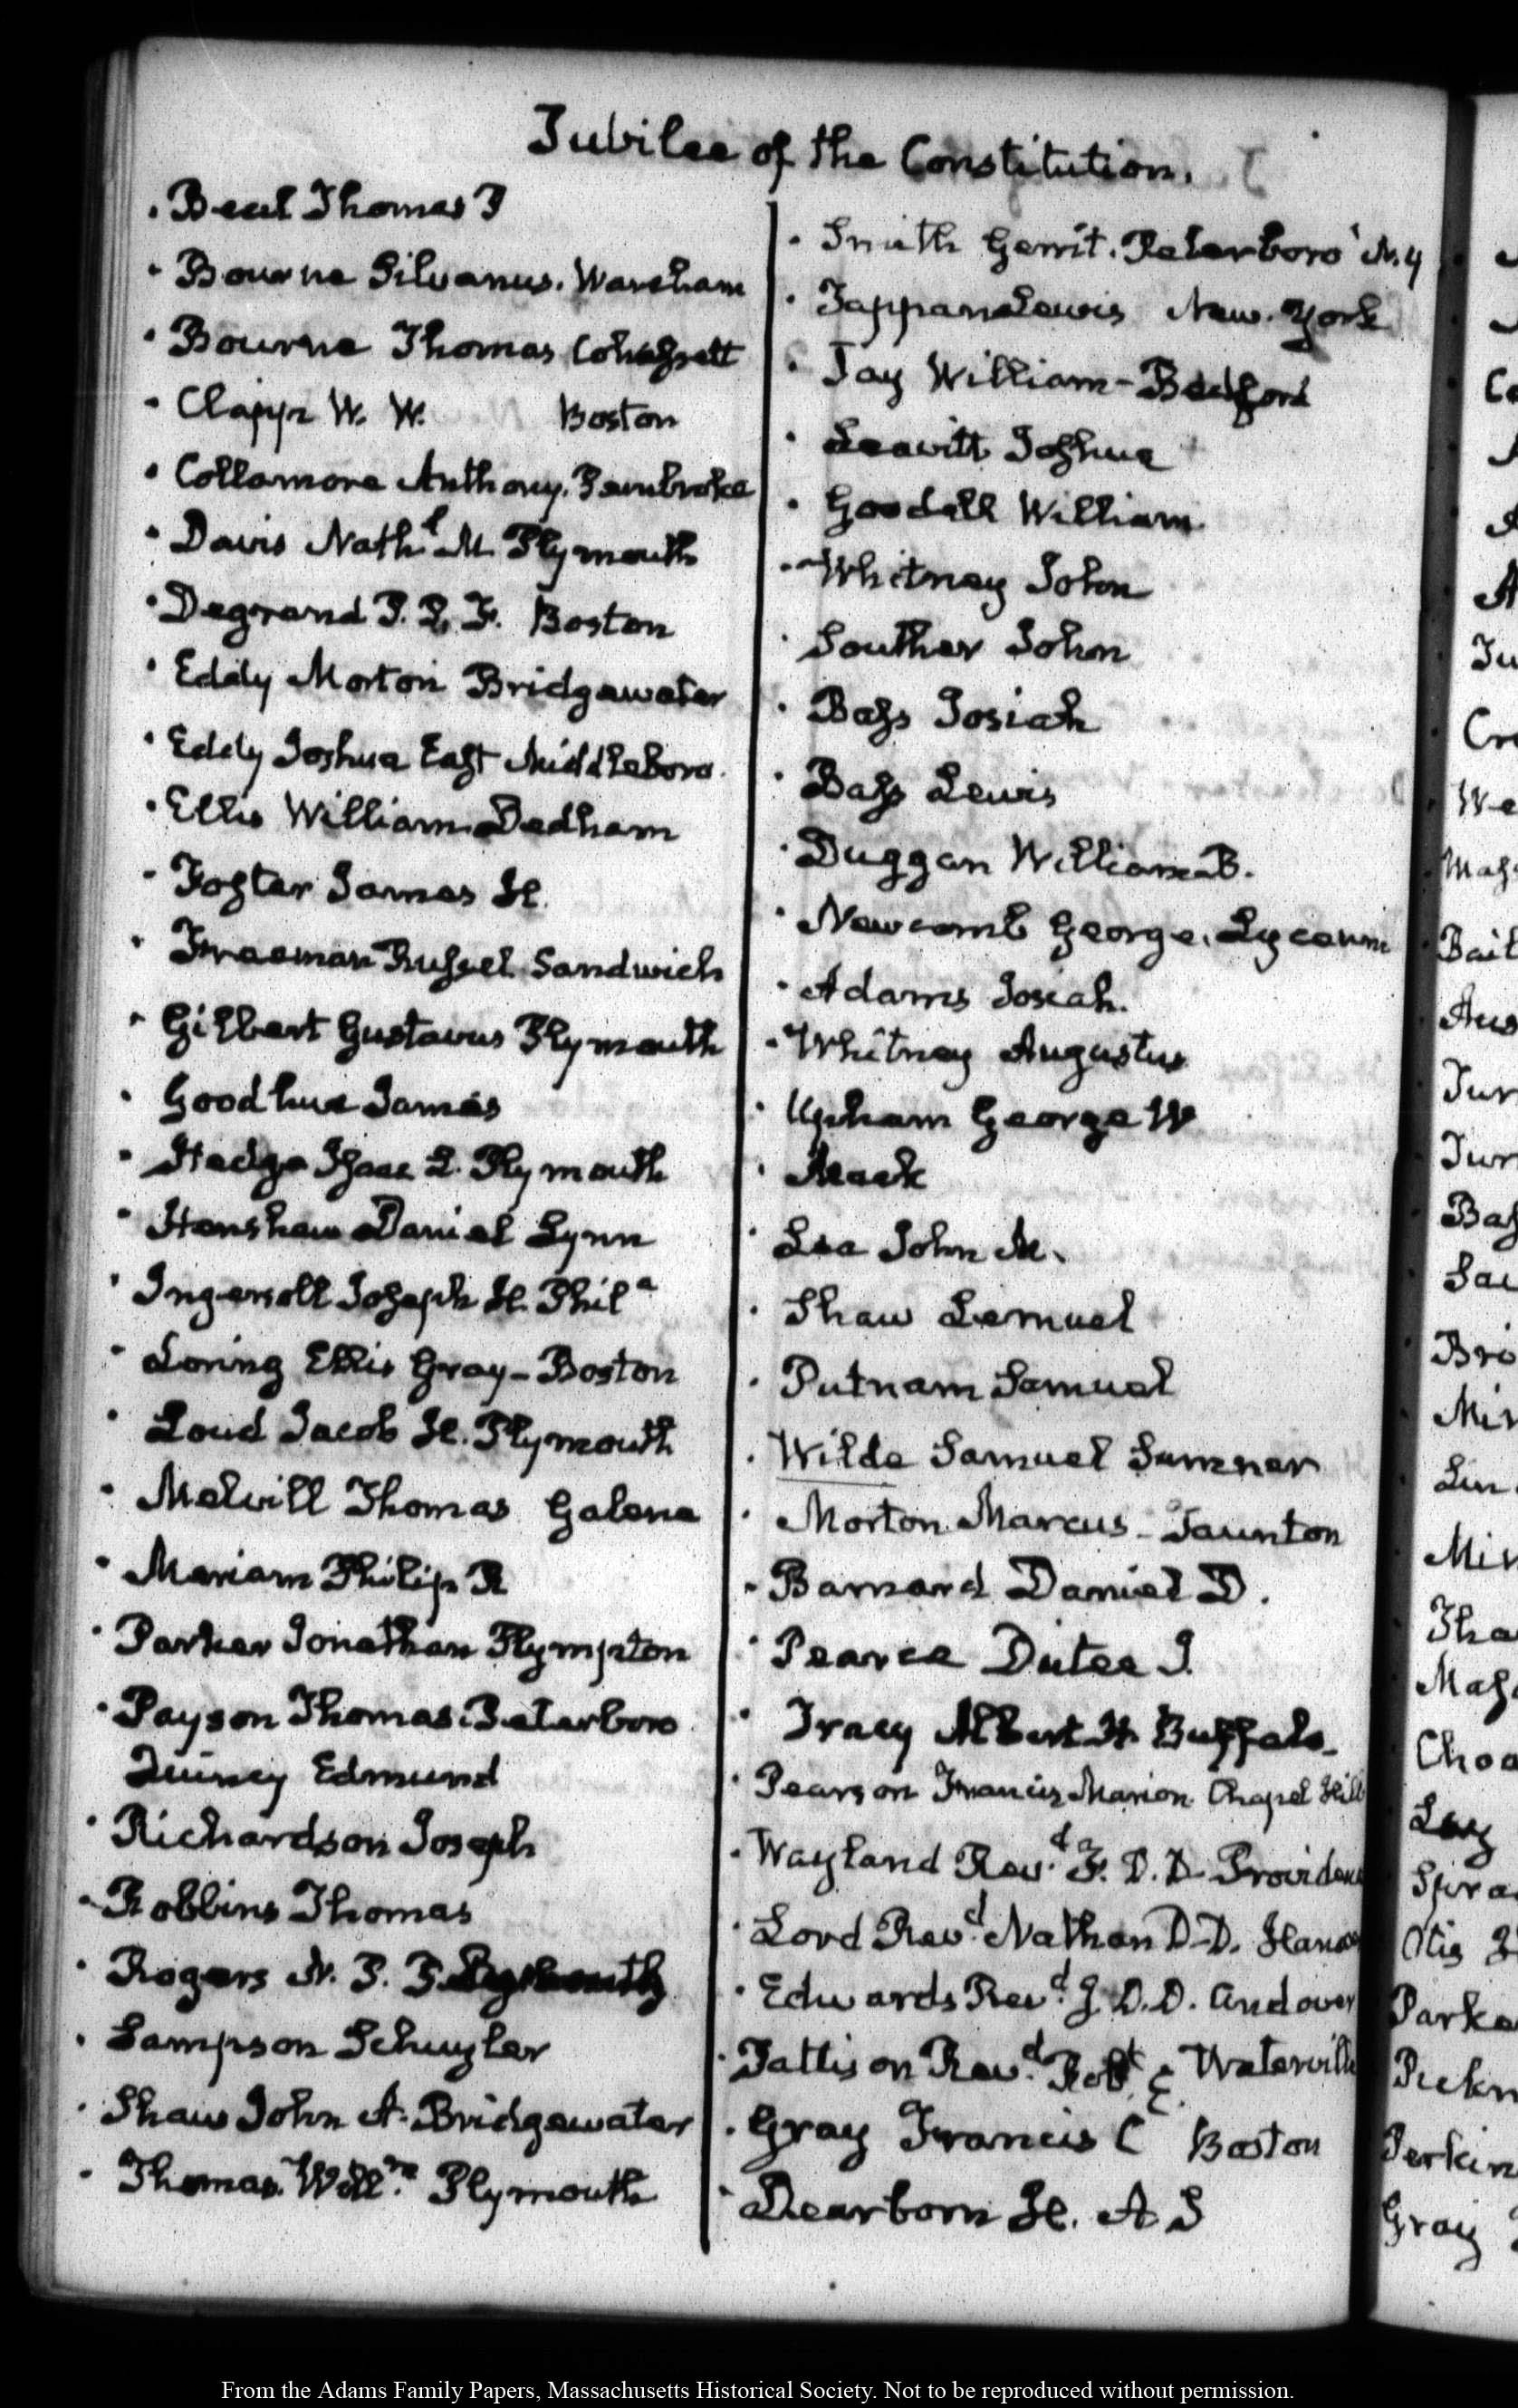 Jubilee of the Constitution.
Beal Thomas P
Bourne Silvanus. Wareham
Bourne Thomas Cohasset
Clapp W. W. Boston
Collamore Anthony. Pembroke
Davis Nathl. M. Plymouth
Degrand P. P. F. Boston
Eddy Morton Bridgewater
Eddy Joshua East Middleboro.
Ellis William. Dedham
Foster James H.
Freeman Russel. Sandwich
Gilbert Gustavus Plymouth
Goodhue James
Hedge Isaac L. Plymouth
Henshaw Daniel Lynn
Ingersoll Joseph H. Phila
Loring Ellis Gray - Boston
Loud Jacob H. Plymouth
Melvill Thomas Galena
Mariam Philip R
Parker Jonathan Plympton
Payson Thomas. Peterboro
Quincy Edmund
Richardson Joseph
Robbins Thomas
Rogers N. P. Plymouth
Sampson Schuyler
Shaw John A. Bridgewater
Thomas Willm. Plymouth
Smith Gerrit. Peterboro' N.Y
Tappan Lewis New. York
Jay William - Bedford
Leavitt Joshua
Goodell William.
Whitney John
Souther John
Bass Josiah
Bass Lewis
Duggan William B.
Newcomb George. Lyceum
Adams Josiah.
Whitney Augustus
Upham George W
Mack
Lea John M.
Shaw Lemuel
Putnam Samuel
Wilde Samuel Sumner
Morton Marcus - Taunton
Barnard Daniel D.
Pearce Dutee J.
Tracy Albert H. Buffalo.
Pearson Francis Marion Chapel Hill
Wayland Revd. F. D. D. Providence
Lord Revd. Nathan D.D. Hanover
Edwards Revd. J. D.D. Andover
Pattison Revd. Robt. E. Waterville
Gray Francis C Boston
Dearborn H. A S
From the Adams Family Papers, Massachusetts Historical Society. Not to be reproduced without permission.